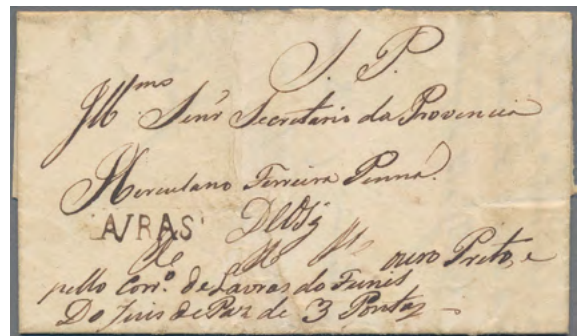 S. P.
Illmo Senr Secretario da Provencia
Herculano Ferreira Penna
LAVRAS
Ouro Preto, e
pello Corro. de Lavras do Funis
Do Juis de Paz de 3 Pontas